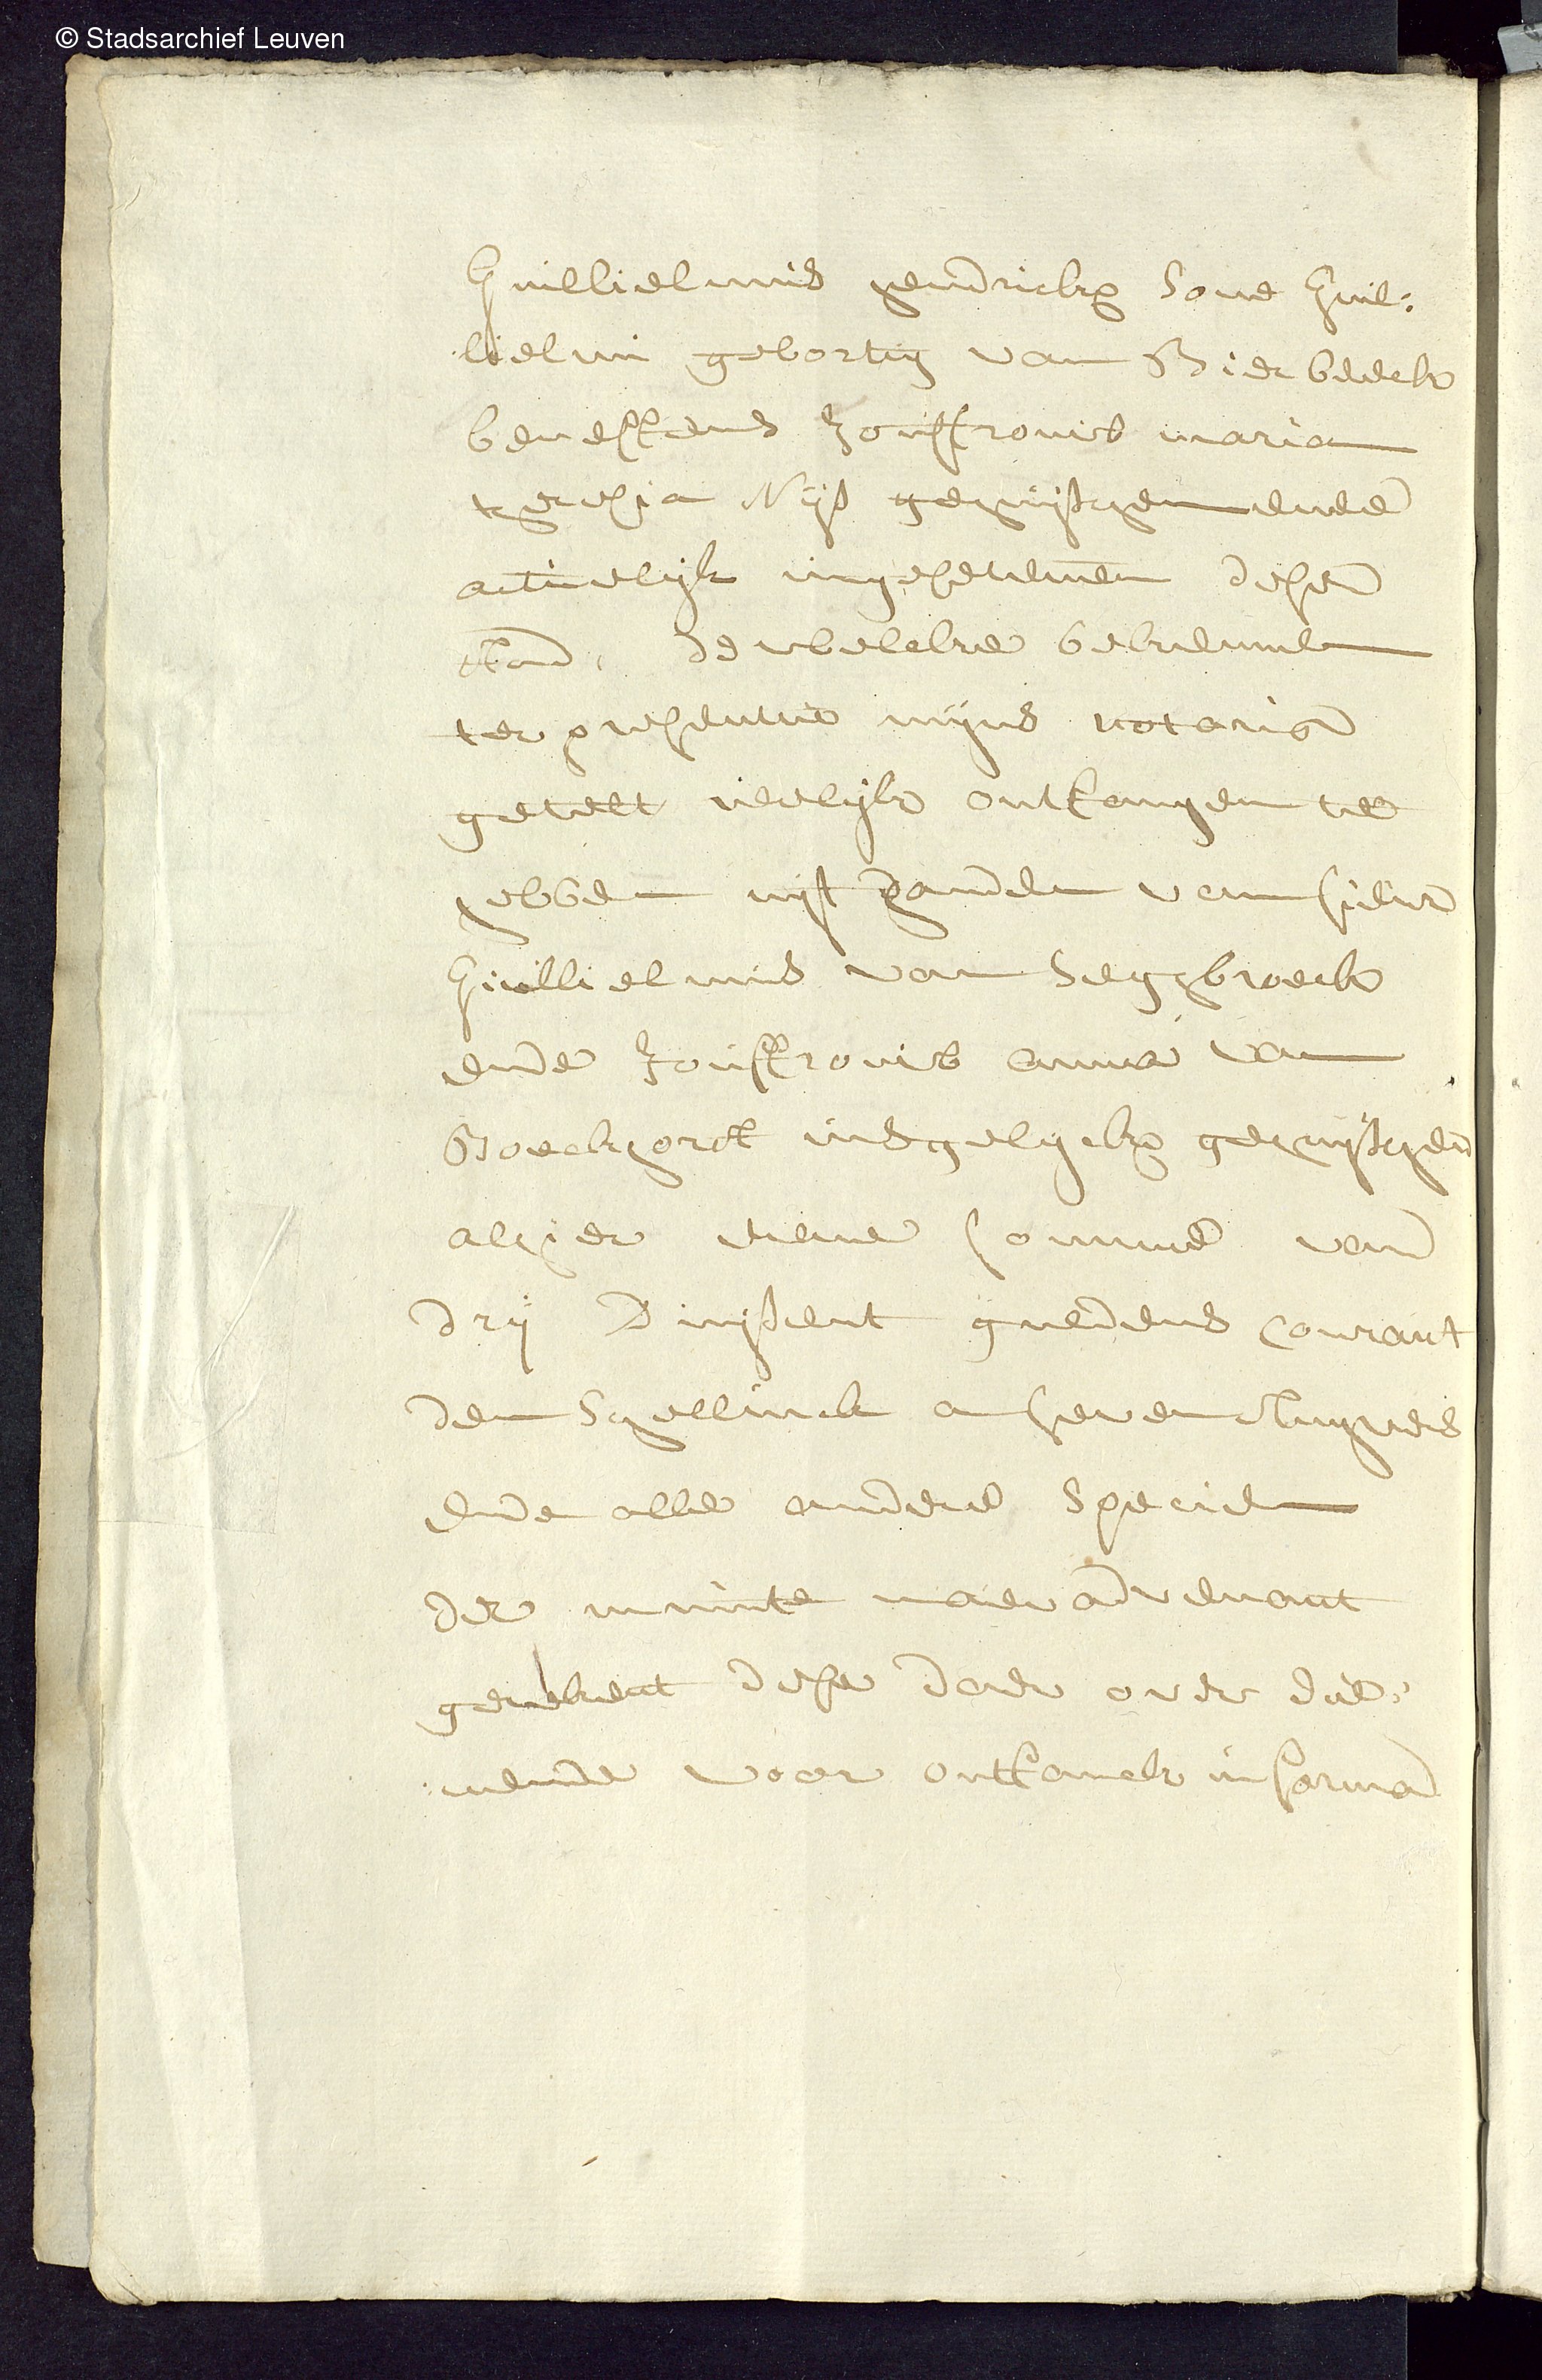 © Stadsarchief Leuven
Guillielmus hendrickx sone Guil:
lielmi gebortig van Bierbeeck
beneffens Jouffrouwe maria
theresia Nijs gehuijschen ende
actuelijk ingesetenen deser
stadt, de welcke bekennen
ter presentie mijns notaris
getelt reelijck ontfangen te
hebben uijt handen van sieur
Guillielmus van Seghbroeck
ende Jouffrouwe anna van
Boeckhordt insgelijckx gehuijschen
alhier eene somme van
drij Duijsent guldens courant
den schellinck a seven stuyvers
ende alle andere specien
der munte naer advenant
gerekent dese daer over die:
nende voor ontfanck in forma